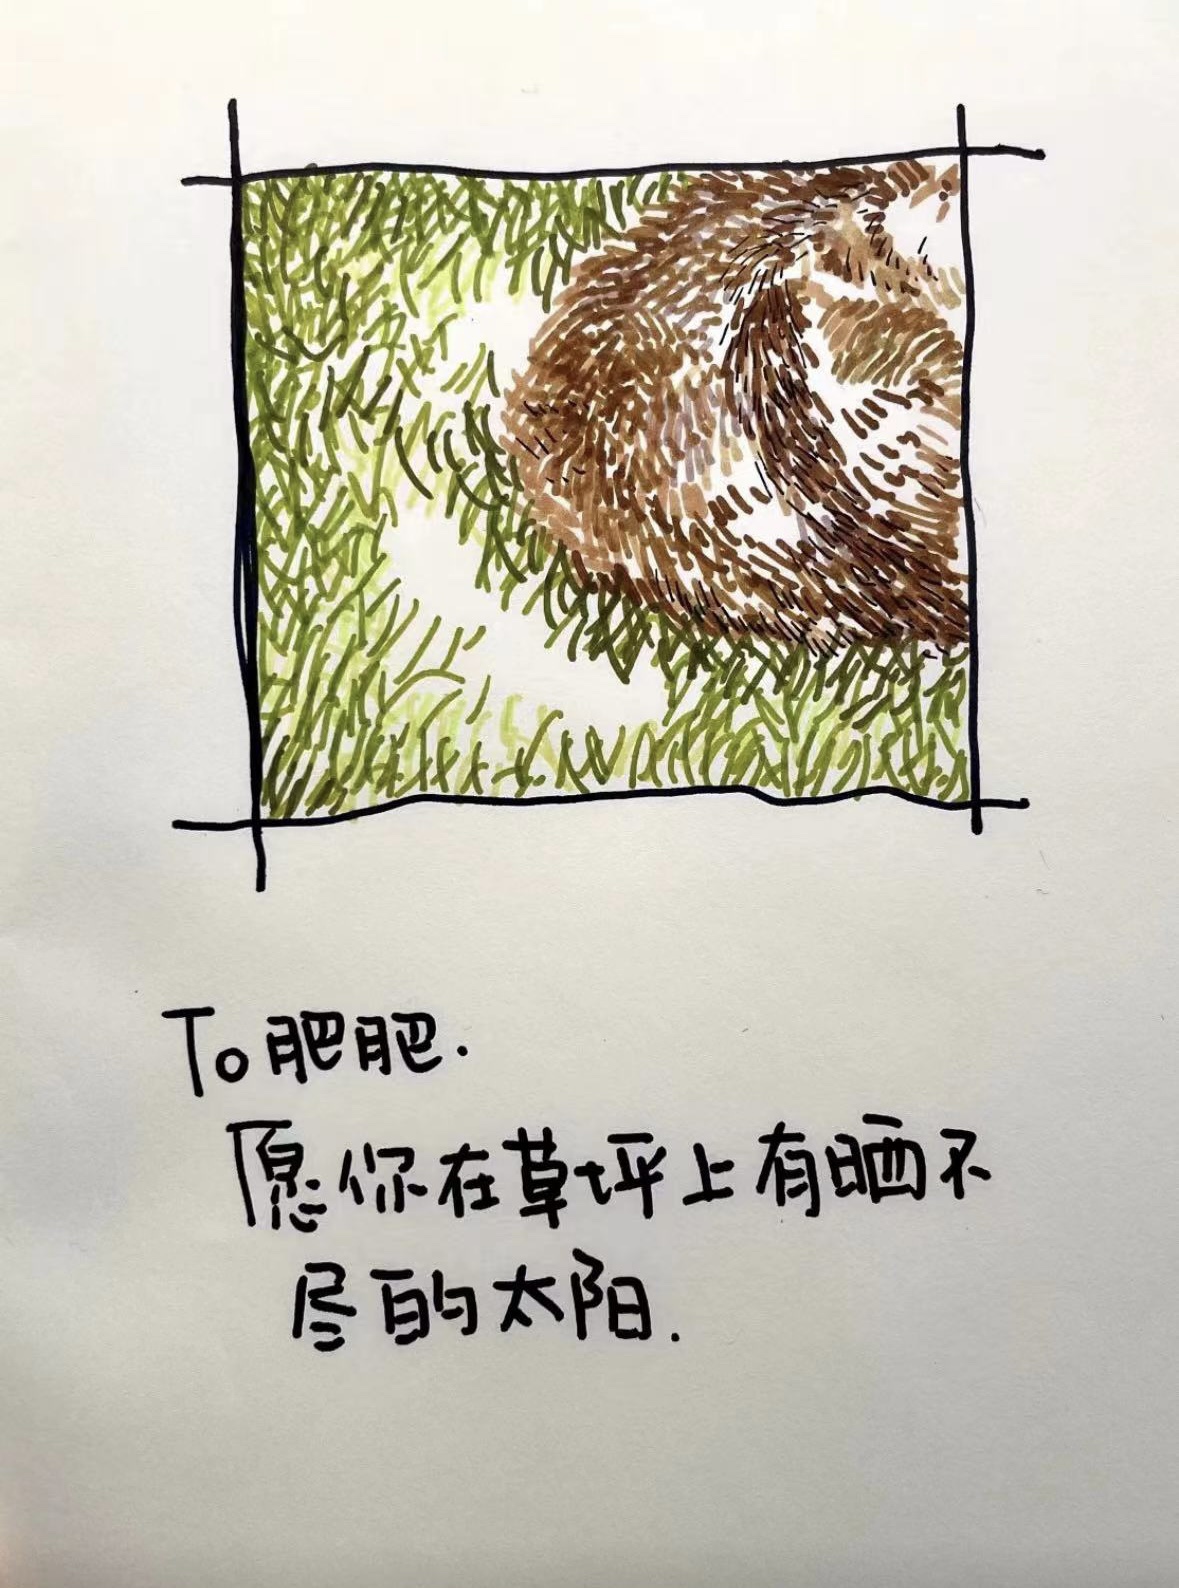 To肥肥.
愿你在草坪上有晒不
尽的太阳.